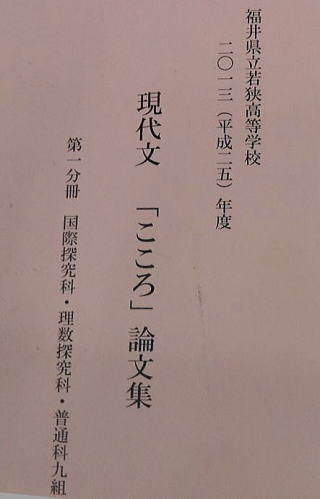 福井県立若狭高等学校
二〇一三（平成二五）年度
現代文　「こころ」論文集
第一分冊　国際探究科・理数探究科・普通科九組